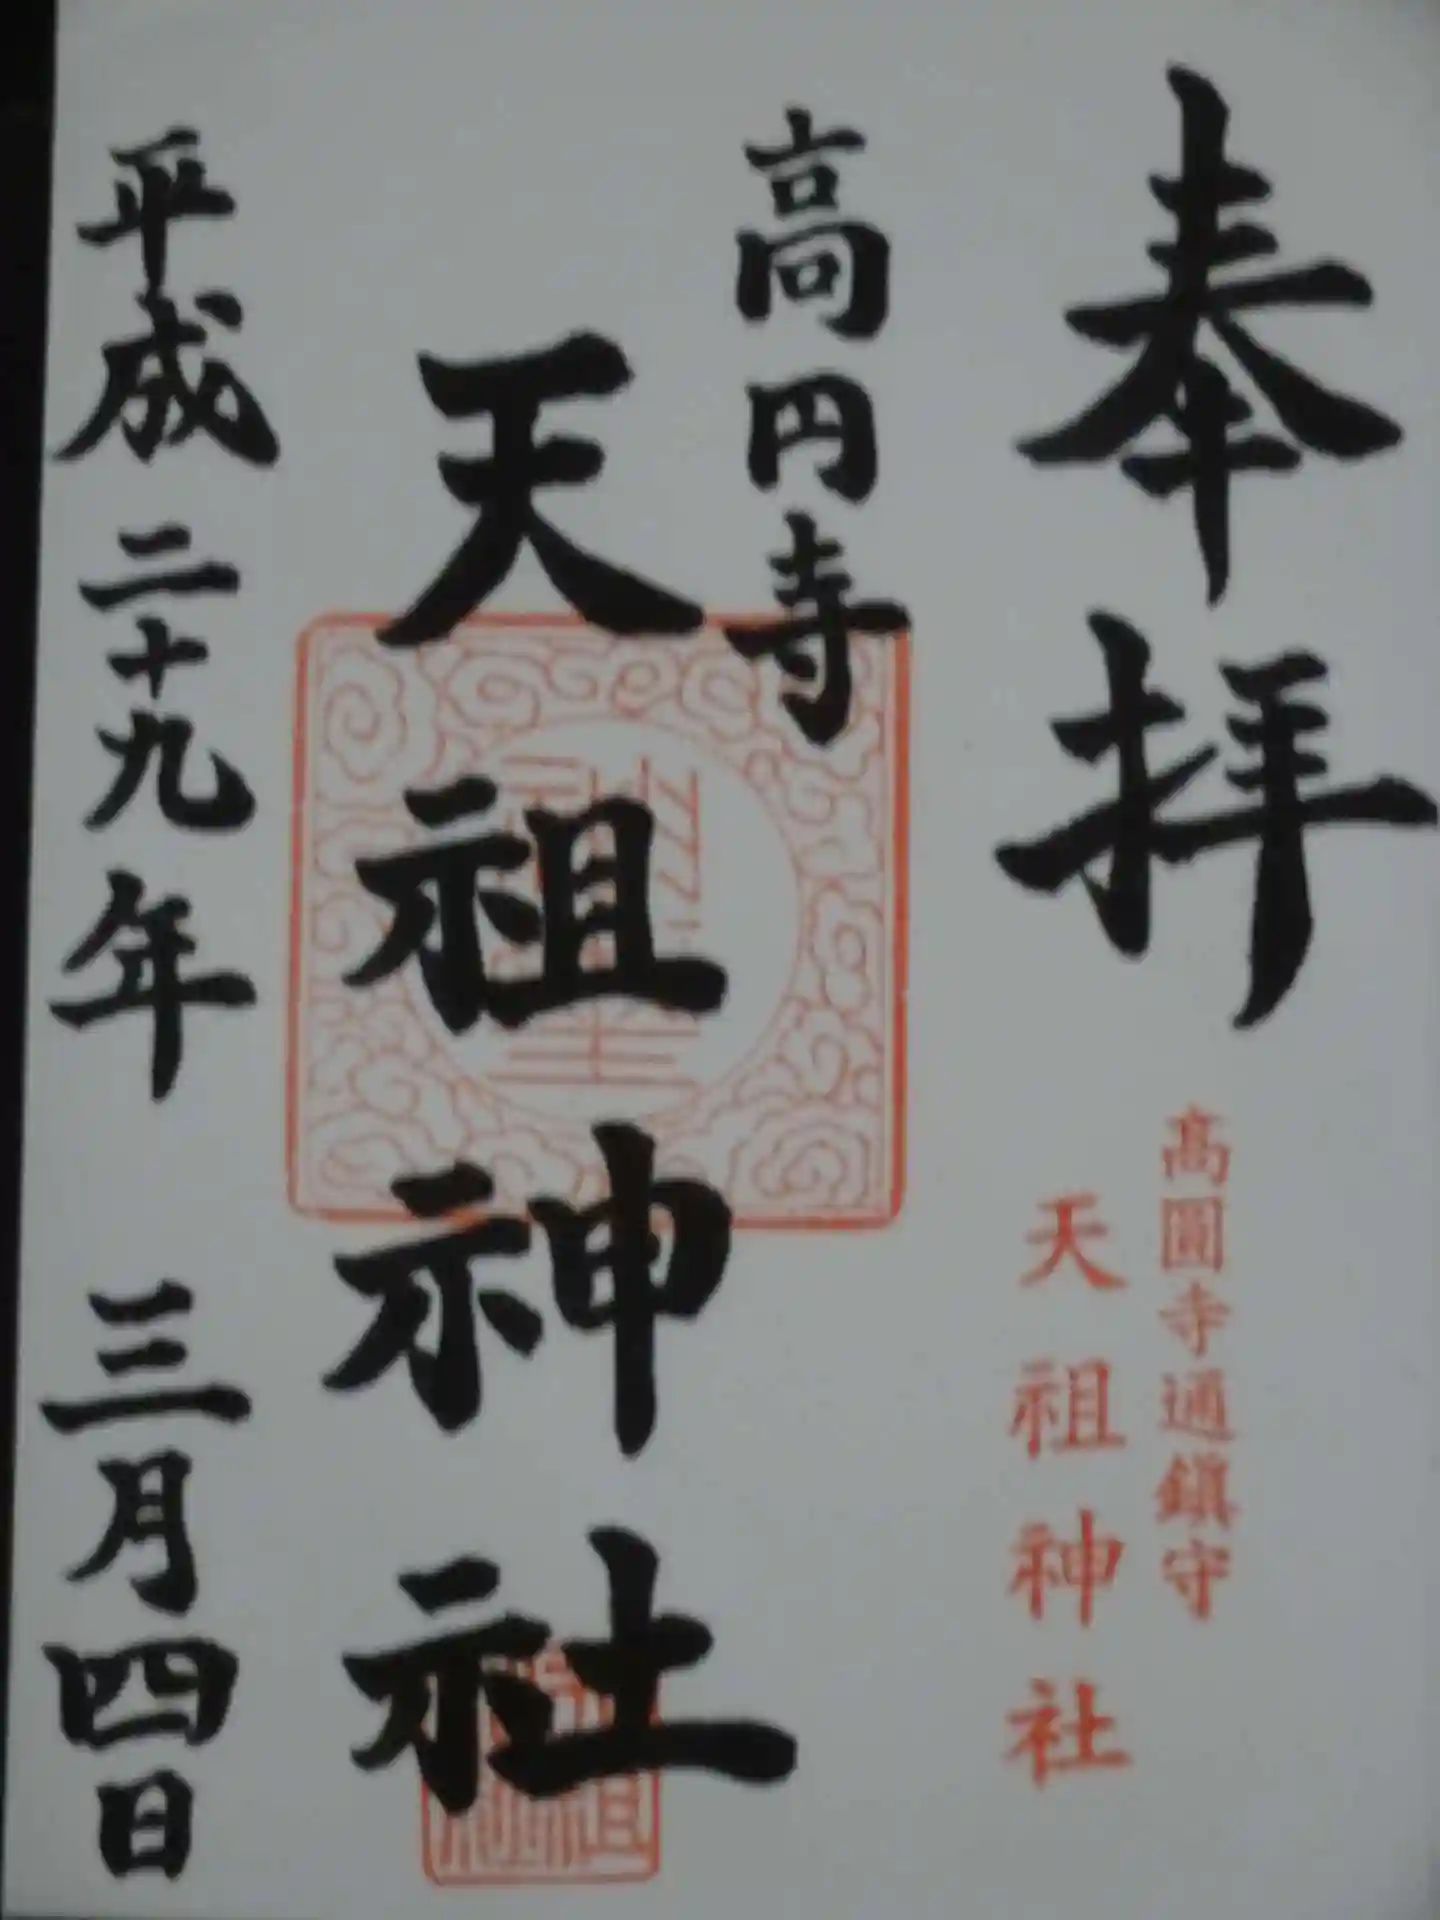 奉拝
髙圓寺通鎮守
天祖神社
高円寺
天祖神社
平成二十九年 三月四日